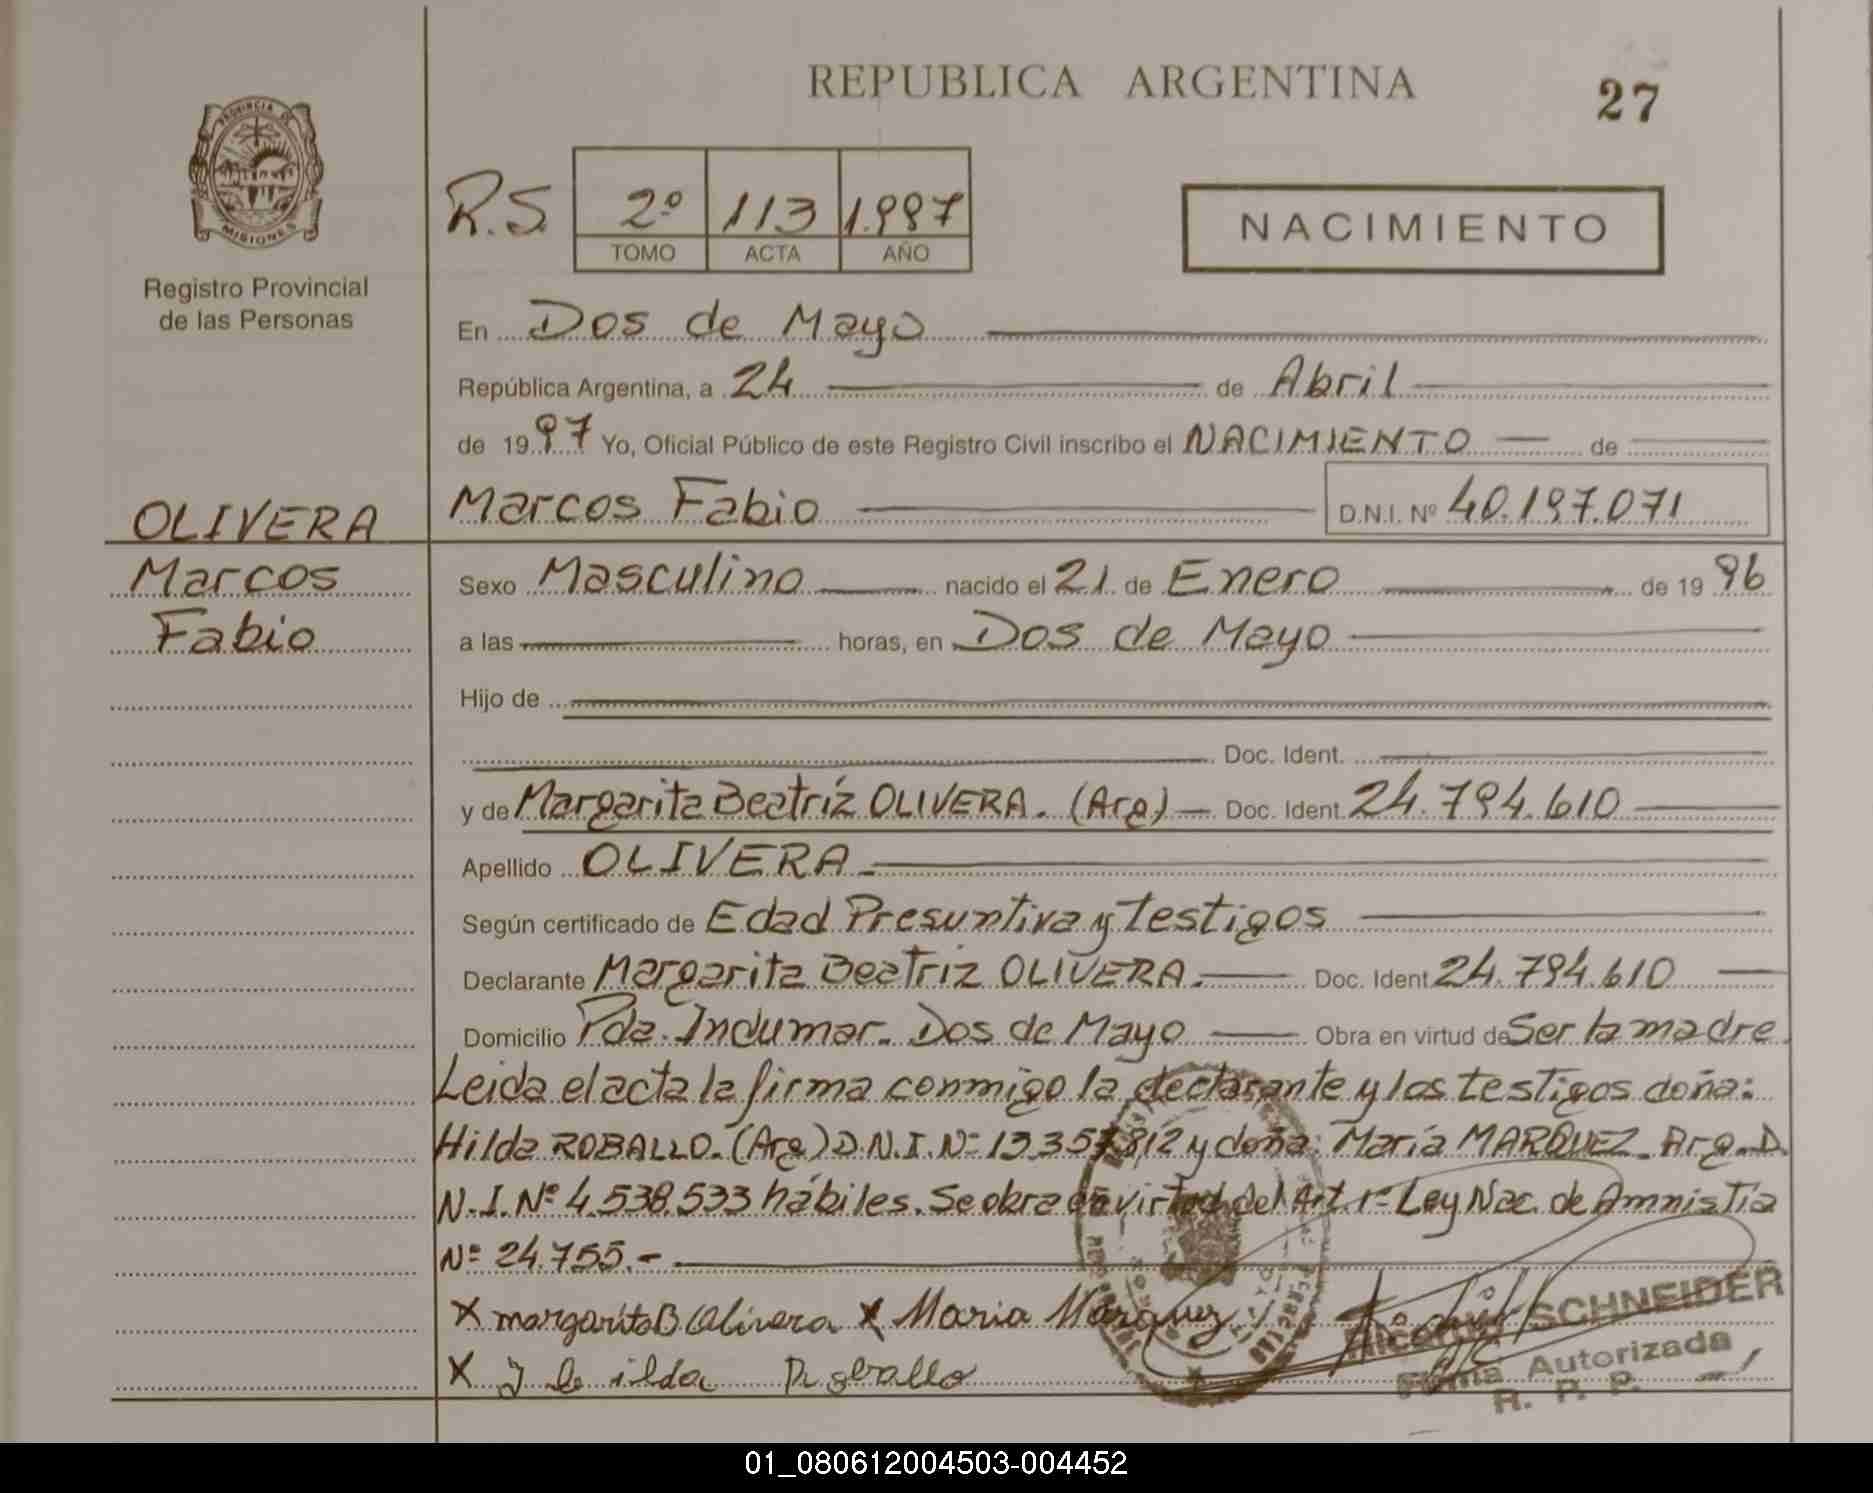 REPUBLICA ARGENTINA
27
PROVINCIA DE
MISIONES
Registro Provincial
de las Personas
R.S. 2º 113 1.997
TOMO ACTA AÑO
NACIMIENTO
En Dos de Mayo
República Argentina, a 24 de Abril
de 1997 Yo, Oficial Público de este Registro Civil inscribo el NACIMIENTO de
OLIVERA
Marcos Fabio
D.N.I. Nº 40.197.071
Marcos
Fabio
Sexo Masculino nacido el 21 de Enero de 1996
a las horas, en Dos de Mayo
Hijo de
Doc. Ident.
y de Margarita Beatríz OLIVERA. (Arg) Doc. Ident. 24.794.610
Apellido OLIVERA
Según certificado de Edad Presuntiva y testigos
Declarante Margarita Beatriz OLIVERA. Doc. Ident 24.794.610
Domicilio Pda. Indumar. Dos de Mayo Obra en virtud de Ser la madre.
Leida el acta la firma conmigo la declarante y los testigos doña:
Hilda ROBALLO. (Arg) D.N.I. Nº 13.357.812 y doña: María MARQUEZ. Arg. D.
N.I. Nº 4.538.533 hábiles. Se obra en virtud del Art. 1º Ley Nac. de Amnistía
Nº 24.755.-
X margarita B Olivera X Maria Marquez
Ricardo SCHNEIDER
A/C
X
Firma Autorizada
R. P. P.
01_080612004503-004452